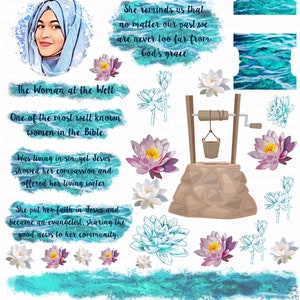 She reminds us that
no matter our past, we
are never too far from
God's grace
The Woman at the Well
One of the most well known
women in the Bible
Was living in sin, yet Jesus
showed her compassion and
offered her living water
She put her faith in Jesus and
became an evangelist, sharing the
good news to her community